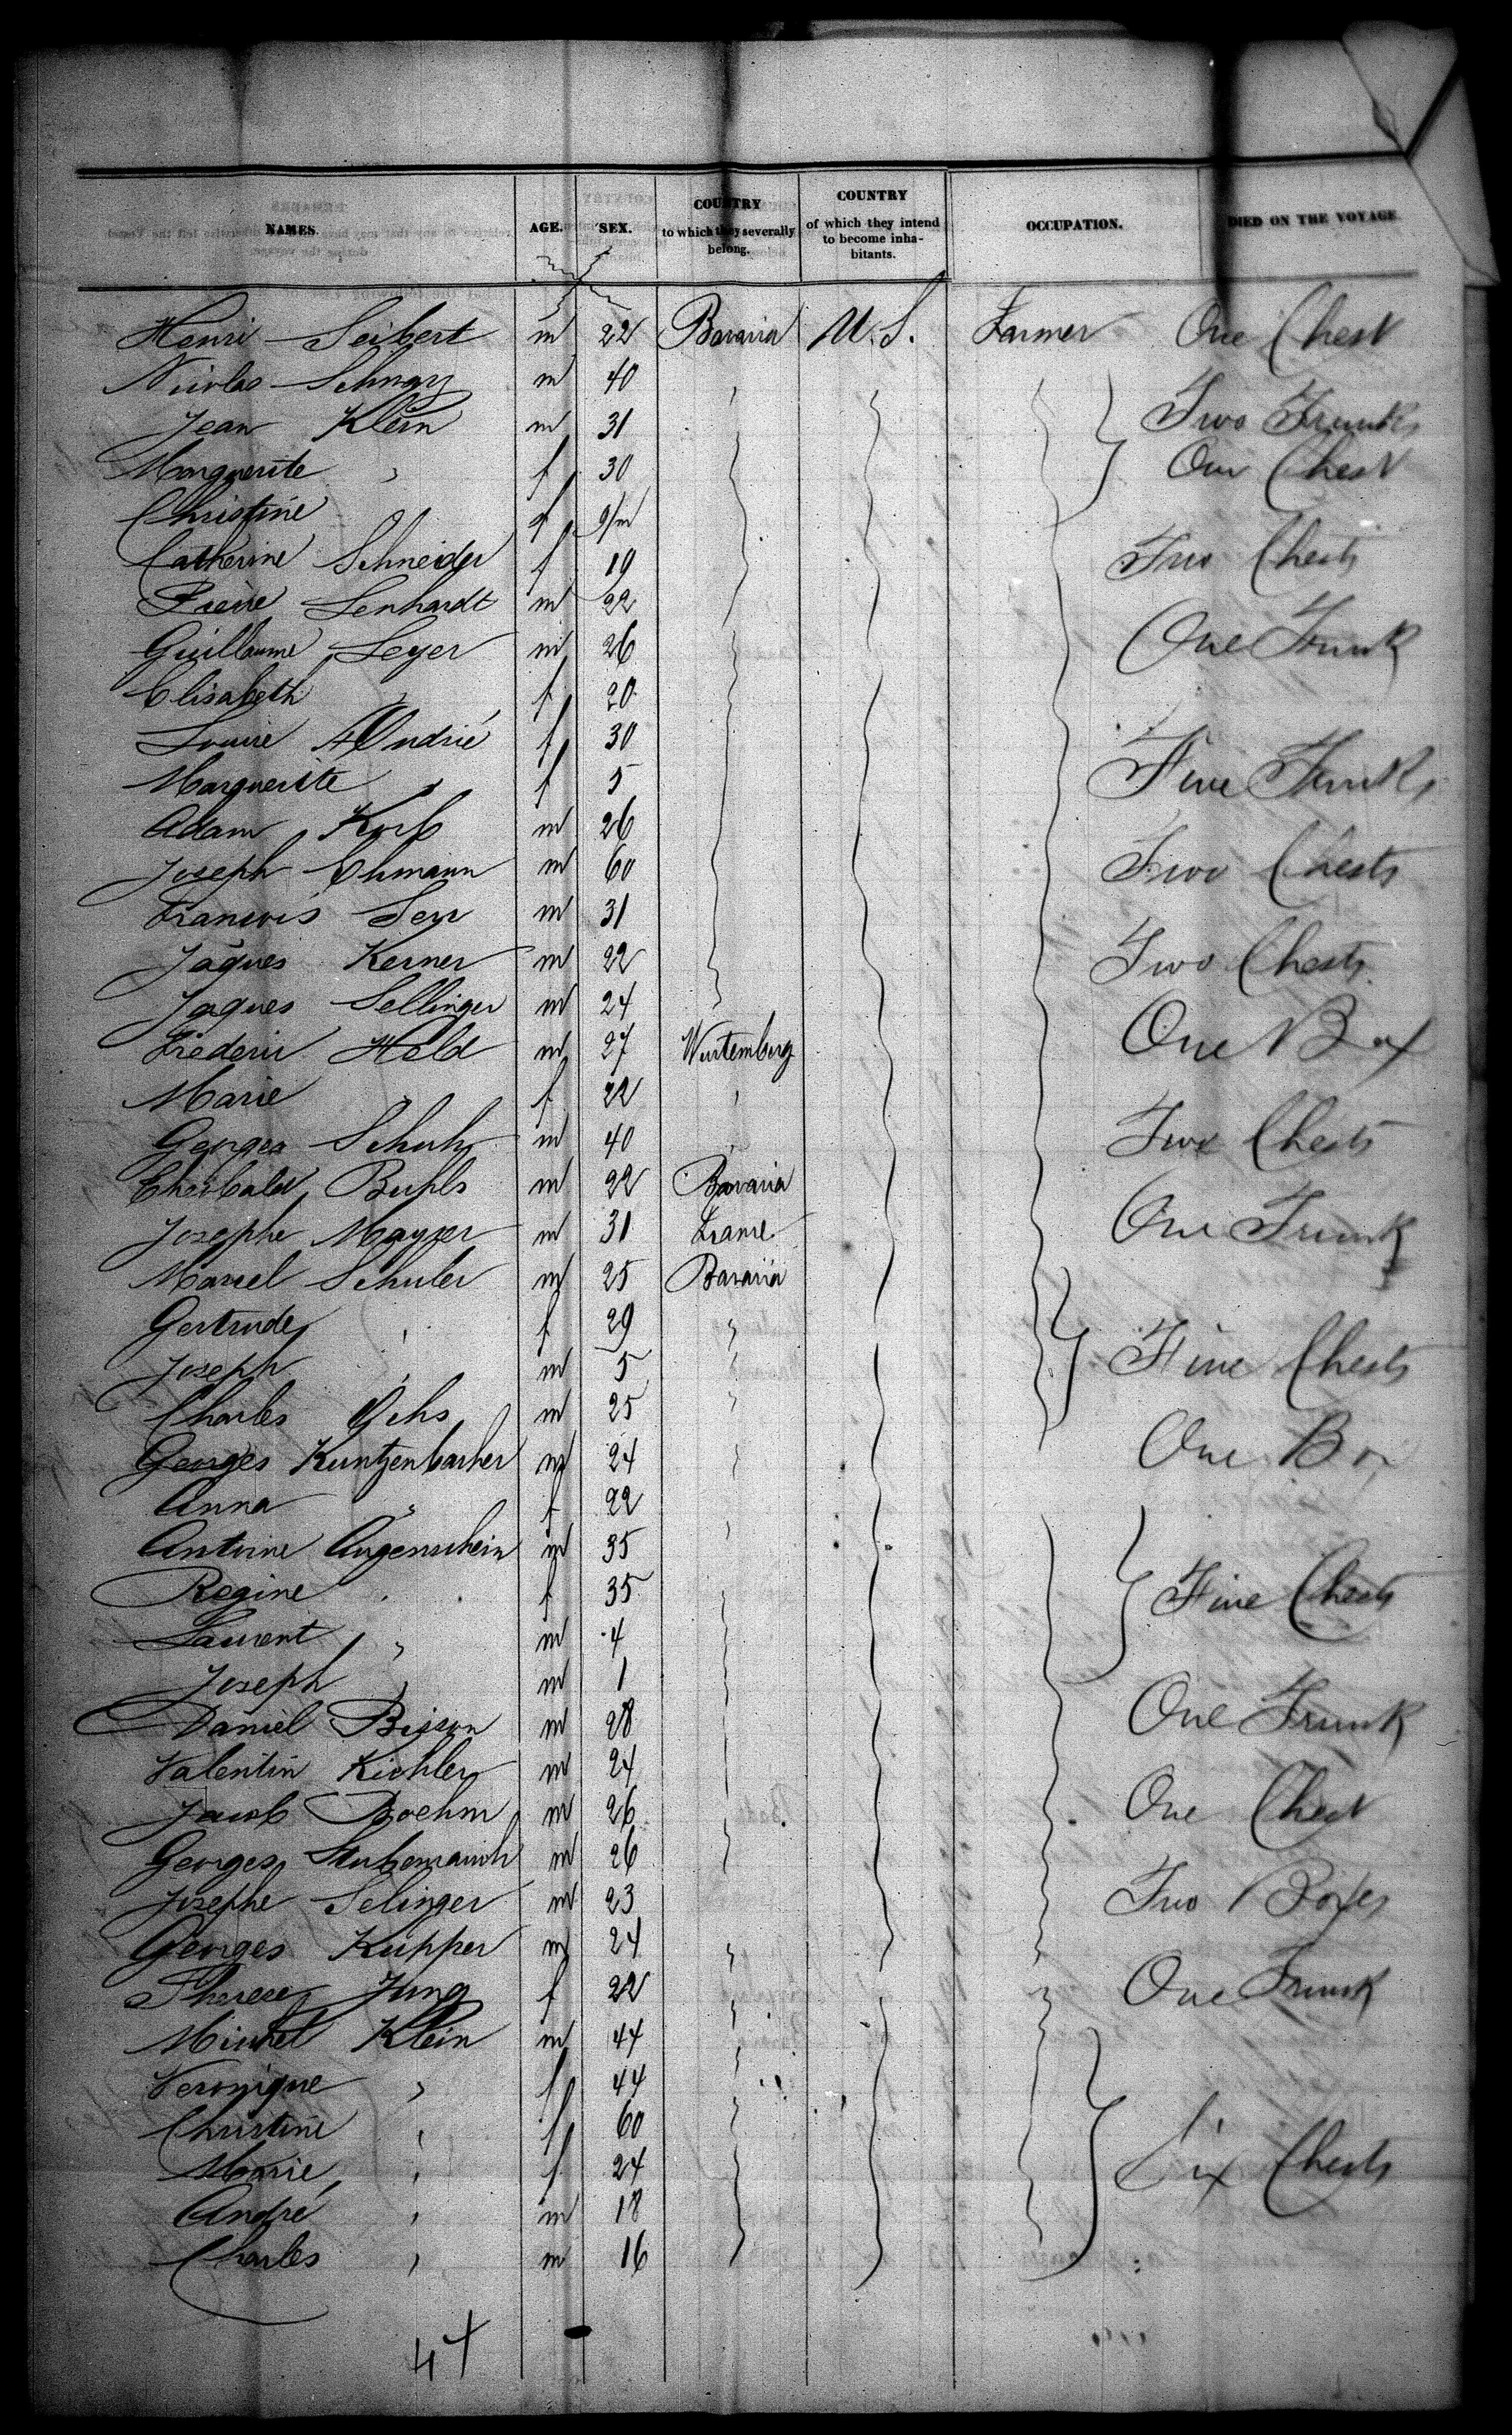 NAMES. AGE. SEX. COUNTRY to which they severally belong. COUNTRY of which they intend to become inhabitants. OCCUPATION. DIED ON THE VOYAGE
Henri Seibert m 22 Bavaria U.S. Farmer One Chest
Nicolas m 40
Jean Klein m 31 Two Trunks
Marguerite " f 30 One Chest
Christine f 9/m
Catherine Schneider f 19 Two Chests
Pierre Lenhardt m 22
Guillaume Leyer m 26 One Trunk
Elisabeth " f 20
Louise f 30
Marguerite " f 5 Five Trunks
Adam Korb m 26
Joseph Ehmann m 60 Two Chests
François m 31
Jaques Kerner m 22 Two Chests
Jaques Sellinger m 24
Frederic Held m 27 Wurtemberg One Box
Marie " f 22 "
Georges Schuh m 40 " Two Chests
m 22 Bavaria
Josephe Mayzer m 31 France One Trunk
Marcel Schuler m 25 Bavaria
Gertrude " f 29 "
Joseph " m 5 " Five Chests
Charles Ochs m 25 "
Georges Kuntzenbacher m 24 " One Box
Anna " f 22
Antoine Augenschein m 35 "
Regine " f 35 Five Chests
Laurent " m 4
Joseph " m 1
Daniel Bisson m 28 One Trunk
Valentin Kichler m 24
Jacob Boehm m 26 One Chest
Georges m 26
Josephe Selinger m 23 Two Boxes
Georges Kupper m 24
Therese Jung f 22 One Trunk
Michel Klein m 44
Veronique " f 44
Christine " f 60
Marie " f 24 Six Chests
André " m 18
Charles " m 16
44